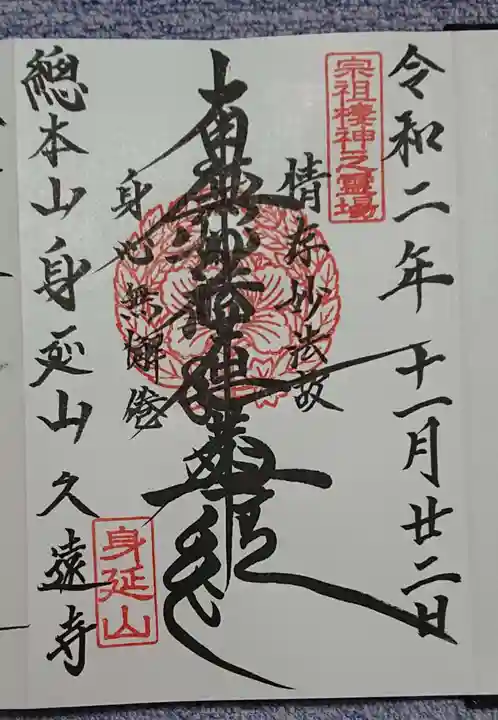 令和二年十一月廿二日
宗祖棲神之靈場
情存妙法故
南無妙法蓮華經
身心無懈倦
總本山身延山久遠寺
身延山